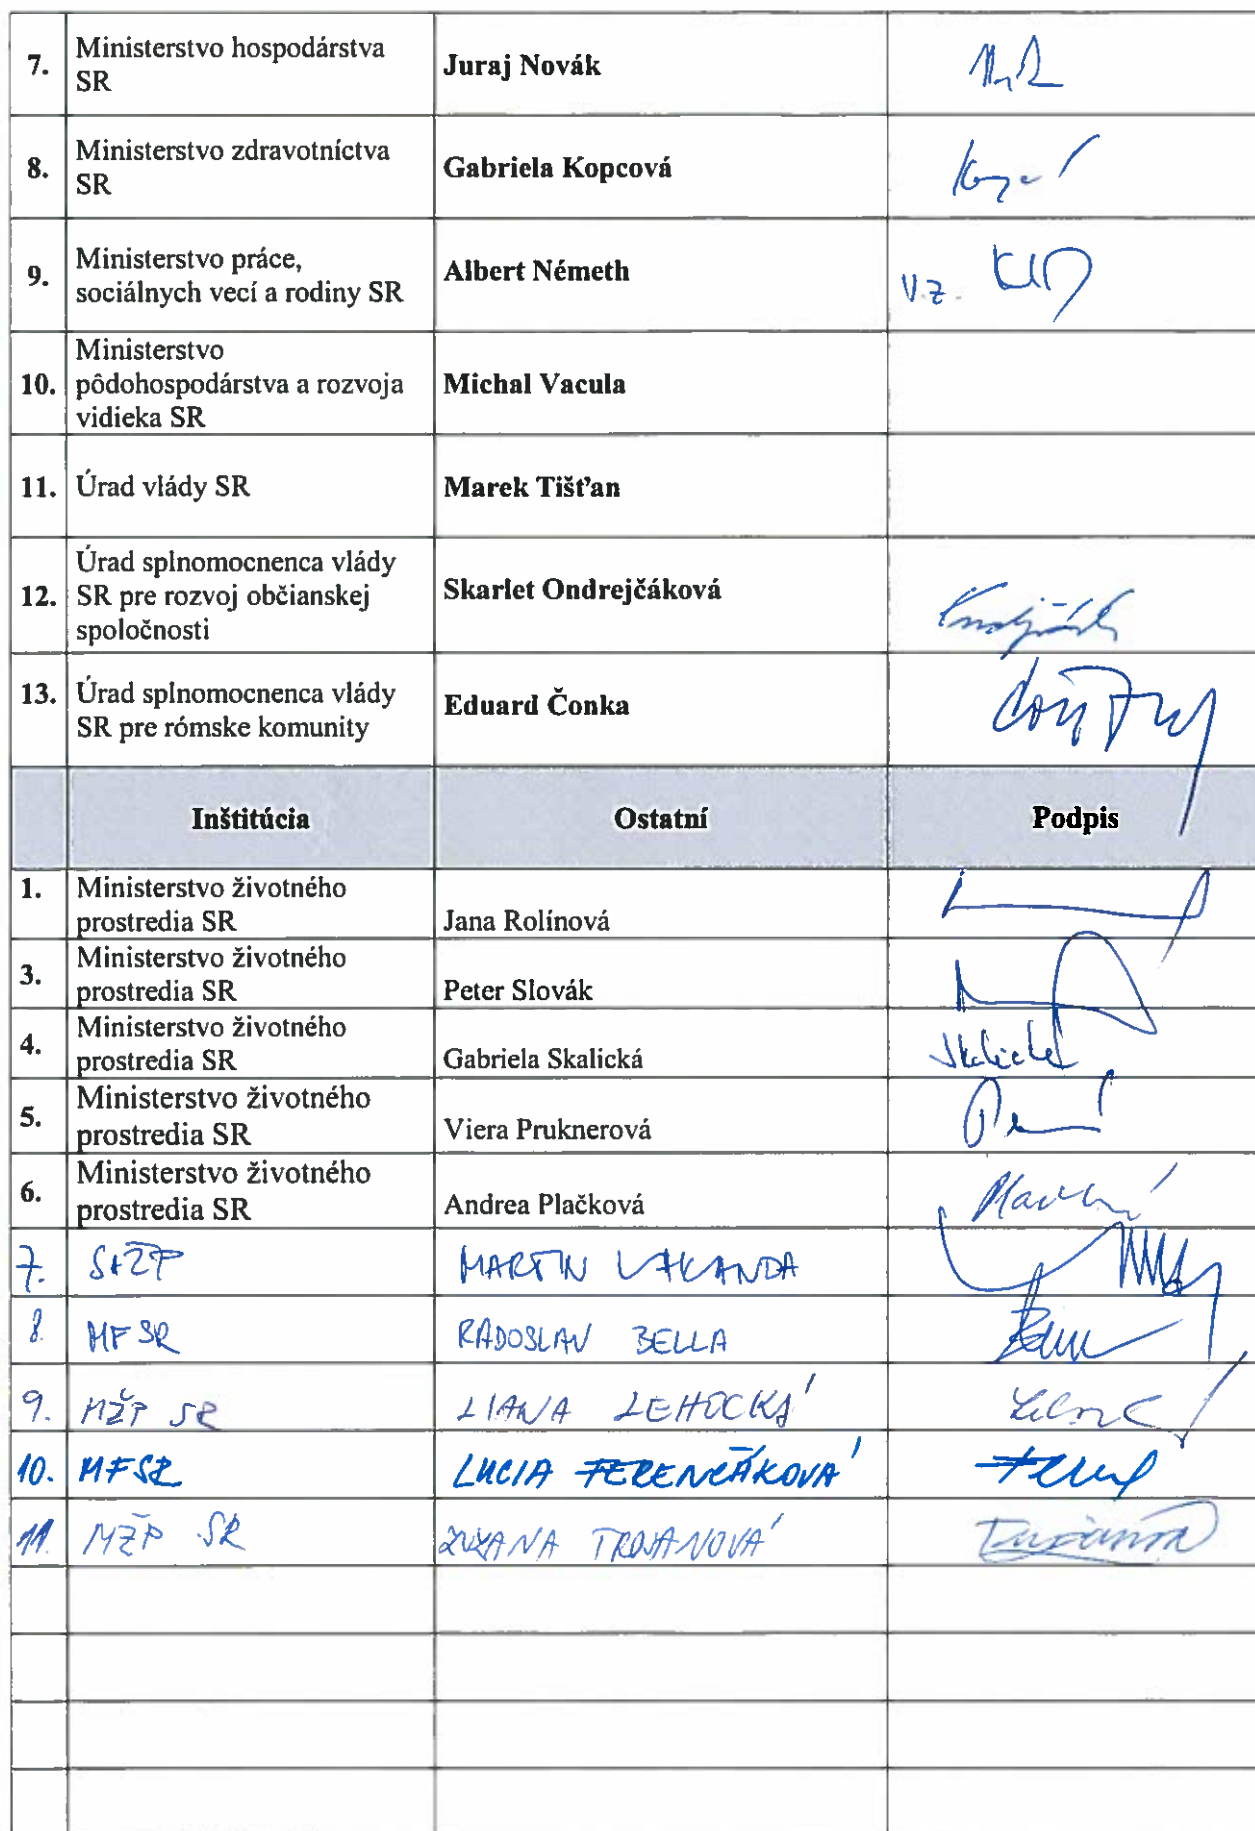 7. Ministerstvo hospodárstva SR Juraj Novák
8. Ministerstvo zdravotníctva SR Gabriela Kopcová
9. Ministerstvo práce, sociálnych vecí a rodiny SR Albert Németh v.z.
10. Ministerstvo pôdohospodárstva a rozvoja vidieka SR Michal Vacula
11. Úrad vlády SR Marek Tišťan
12. Úrad splnomocnenca vlády SR pre rozvoj občianskej spoločnosti Skarlet Ondrejčáková
13. Úrad splnomocnenca vlády SR pre rómske komunity Eduard Čonka
Inštitúcia Ostatní Podpis
1. Ministerstvo životného prostredia SR Jana Rolínová
3. Ministerstvo životného prostredia SR Peter Slovák
4. Ministerstvo životného prostredia SR Gabriela Skalická
5. Ministerstvo životného prostredia SR Viera Pruknerová
6. Ministerstvo životného prostredia SR Andrea Plačková
7. MARTIN
8. MF SR RADOSLAV BELLA
9. MŽP SR LIANA LEHOCKÁ
10. MFSR LUCIA FERENČÁKOVÁ
11. MŽP SR ZUZANA TROJANOVÁ